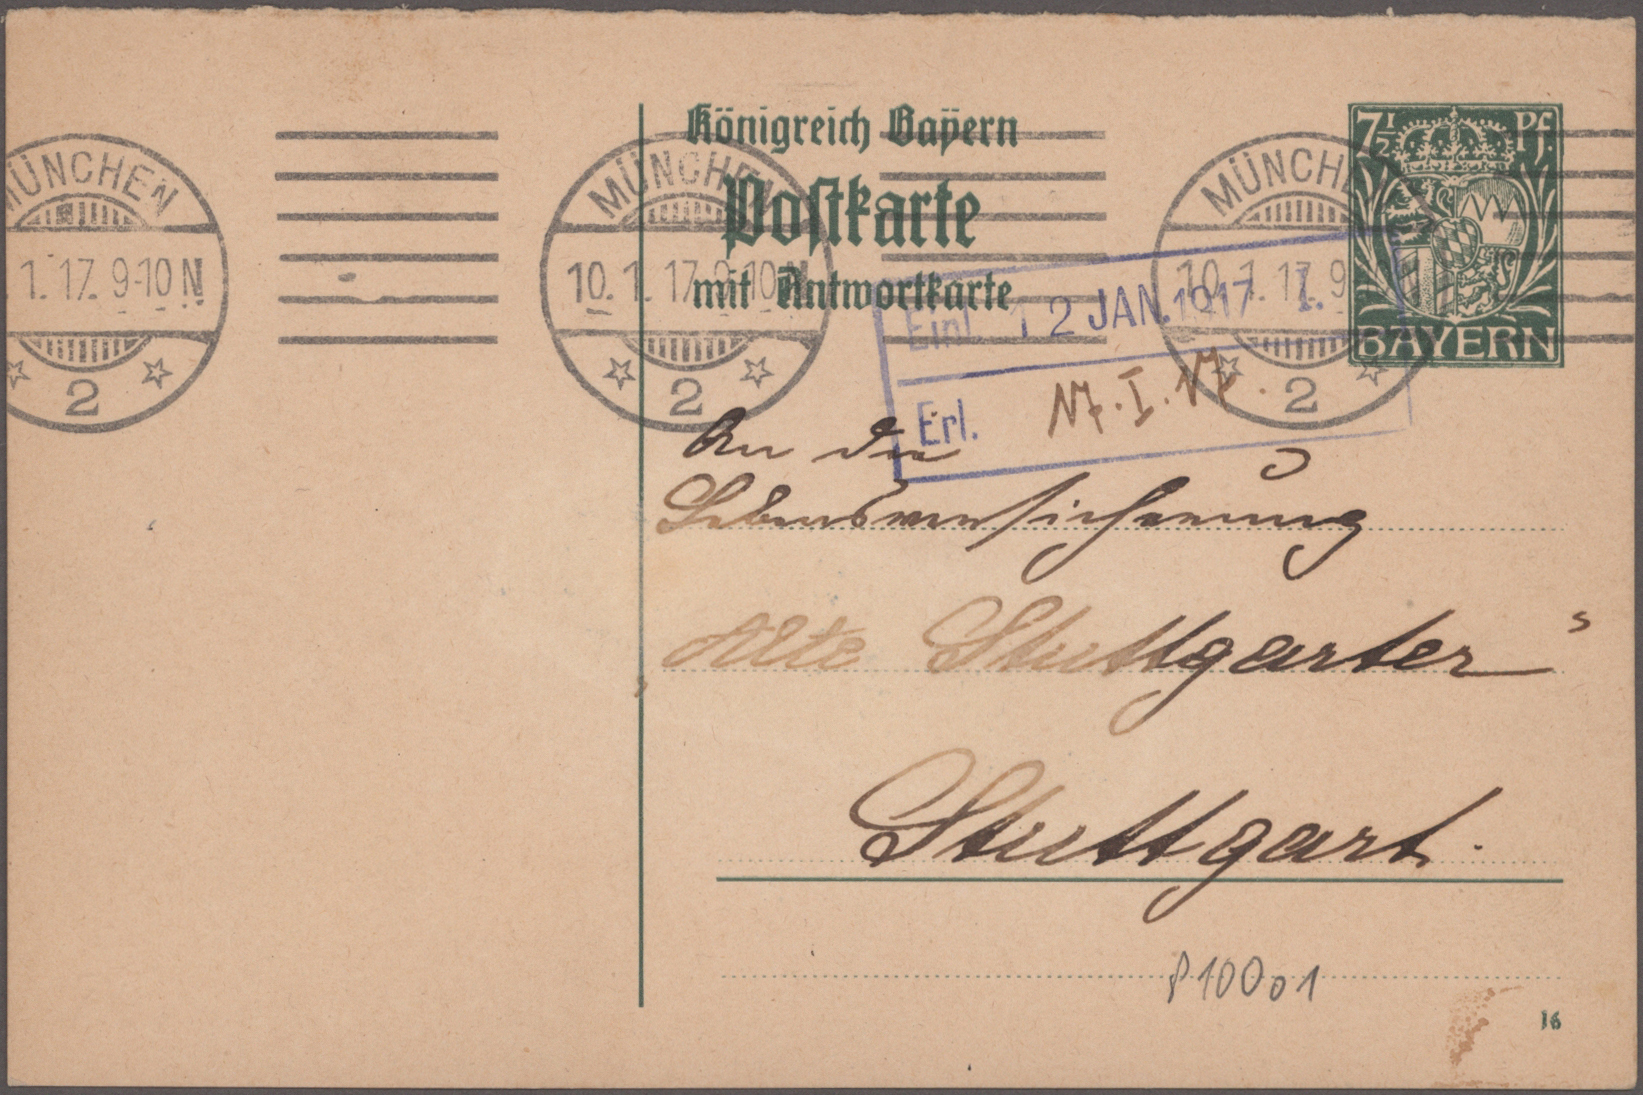 Königreich Bayern
Postkarte
mit Antwortkarte
7½ Pf.
BAYERN
MÜNCHEN
1. 17. 9-10 N
2
MÜNCHEN
10. 1. 17. 9-10 N
2
MÜNCHE
10. 1. 17. 9
2
Einl. 12 JAN. 1917 I.
Erl. 17. I. 17.
An die
Lebensversicherung
„Alte Stuttgarter“
Stuttgart.
P100 01
16